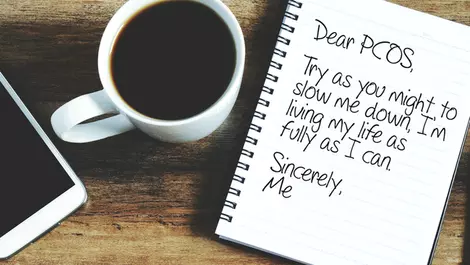 Dear PCOS,
Try as you might to
slow me down, I'm
living my life as
fully as I can.
Sincerely,
Me